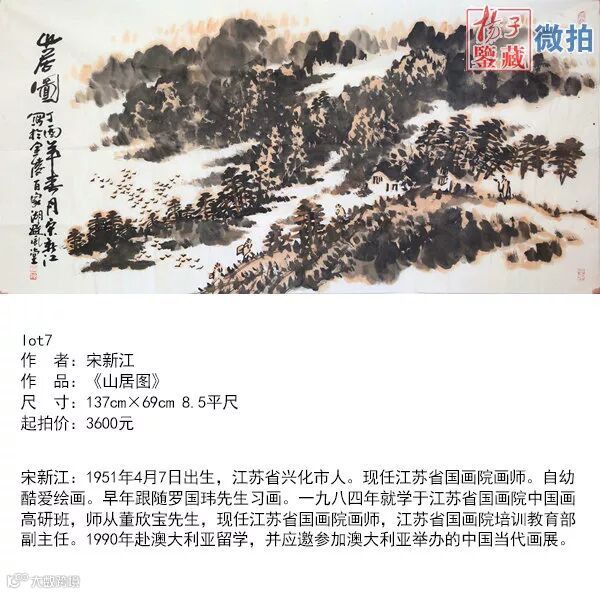 扬子
鉴藏
微拍
山居图
丁酉年春月宋新江
写于金陵百家湖
lot7
作 者：宋新江
作 品：《山居图》
尺 寸：137cm×69cm 8.5平尺
起拍价：3600元
宋新江：1951年4月7日出生，江苏省兴化市人。现任江苏省国画院画师。自幼
酷爱绘画。早年跟随罗国玮先生习画。一九八四年就学于江苏省国画院中国画
高研班，师从董欣宝先生，现任江苏省国画院画师，江苏省国画院培训教育部
副主任。1990年赴澳大利亚留学，并应邀参加澳大利亚举办的中国当代画展。